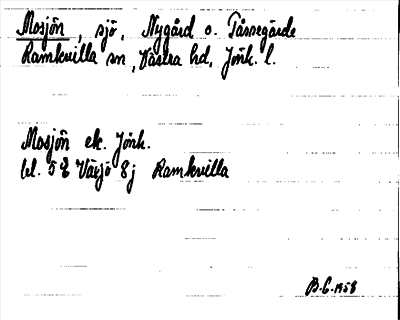 Mosjön, sjö, Nygård o. Tåssegärde
Ramkvilla sn, Västra hd, Jönk. l.
Mosjön ek. Jönk.
bl. 58 Växjö 8j Ramkvilla
B.C. 1958